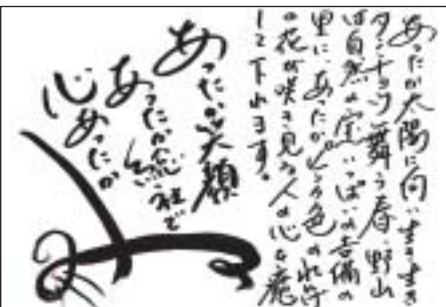 あったか太陽に向い生き生き
タンチョウ舞う春、野山
は自然の宝いっぱいの吉備の
里に、あったか
の花が咲き見る人の心を癒
して下れます。
あったか笑顔
あったか
心あったか